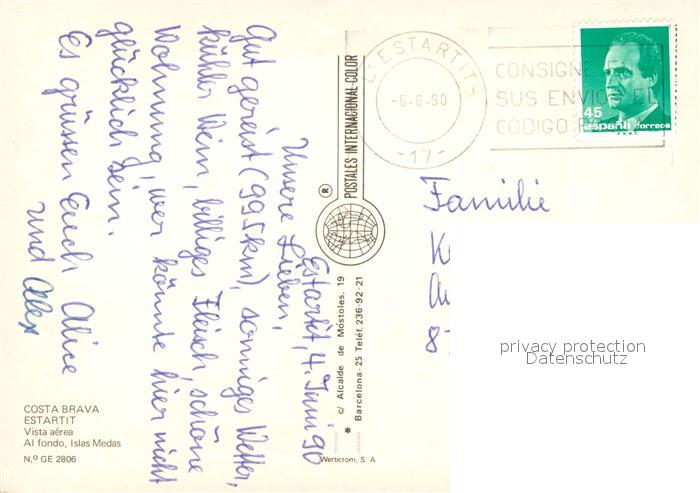 Estartit, 4. Juni 90
Unsere Lieben,
Gut gereist (995km), sonniges Wetter,
kühler Wein, billiges Fleisch, schöne
Wohnung, wer könnte hier nicht
glücklich sein.
Es grüssen Euch Alice
und Alex
COSTA BRAVA
ESTARTIT
Vista aérea
Al fondo, Islas Medas
N.º GE 2806
® POSTALES INTERNACIONAL-COLOR
c/ Alcalde de Móstoles, 19
* Barcelona-25 Teléf. 236-92-21
Werticrom, S. A
L'ESTARTIT
-6.6.90
-17-
CONSIGNE
SUS ENVIO EL
CODIGO
45
españa correos
F.N.M.T.
Familie
8
privacy protection
Datenschutz